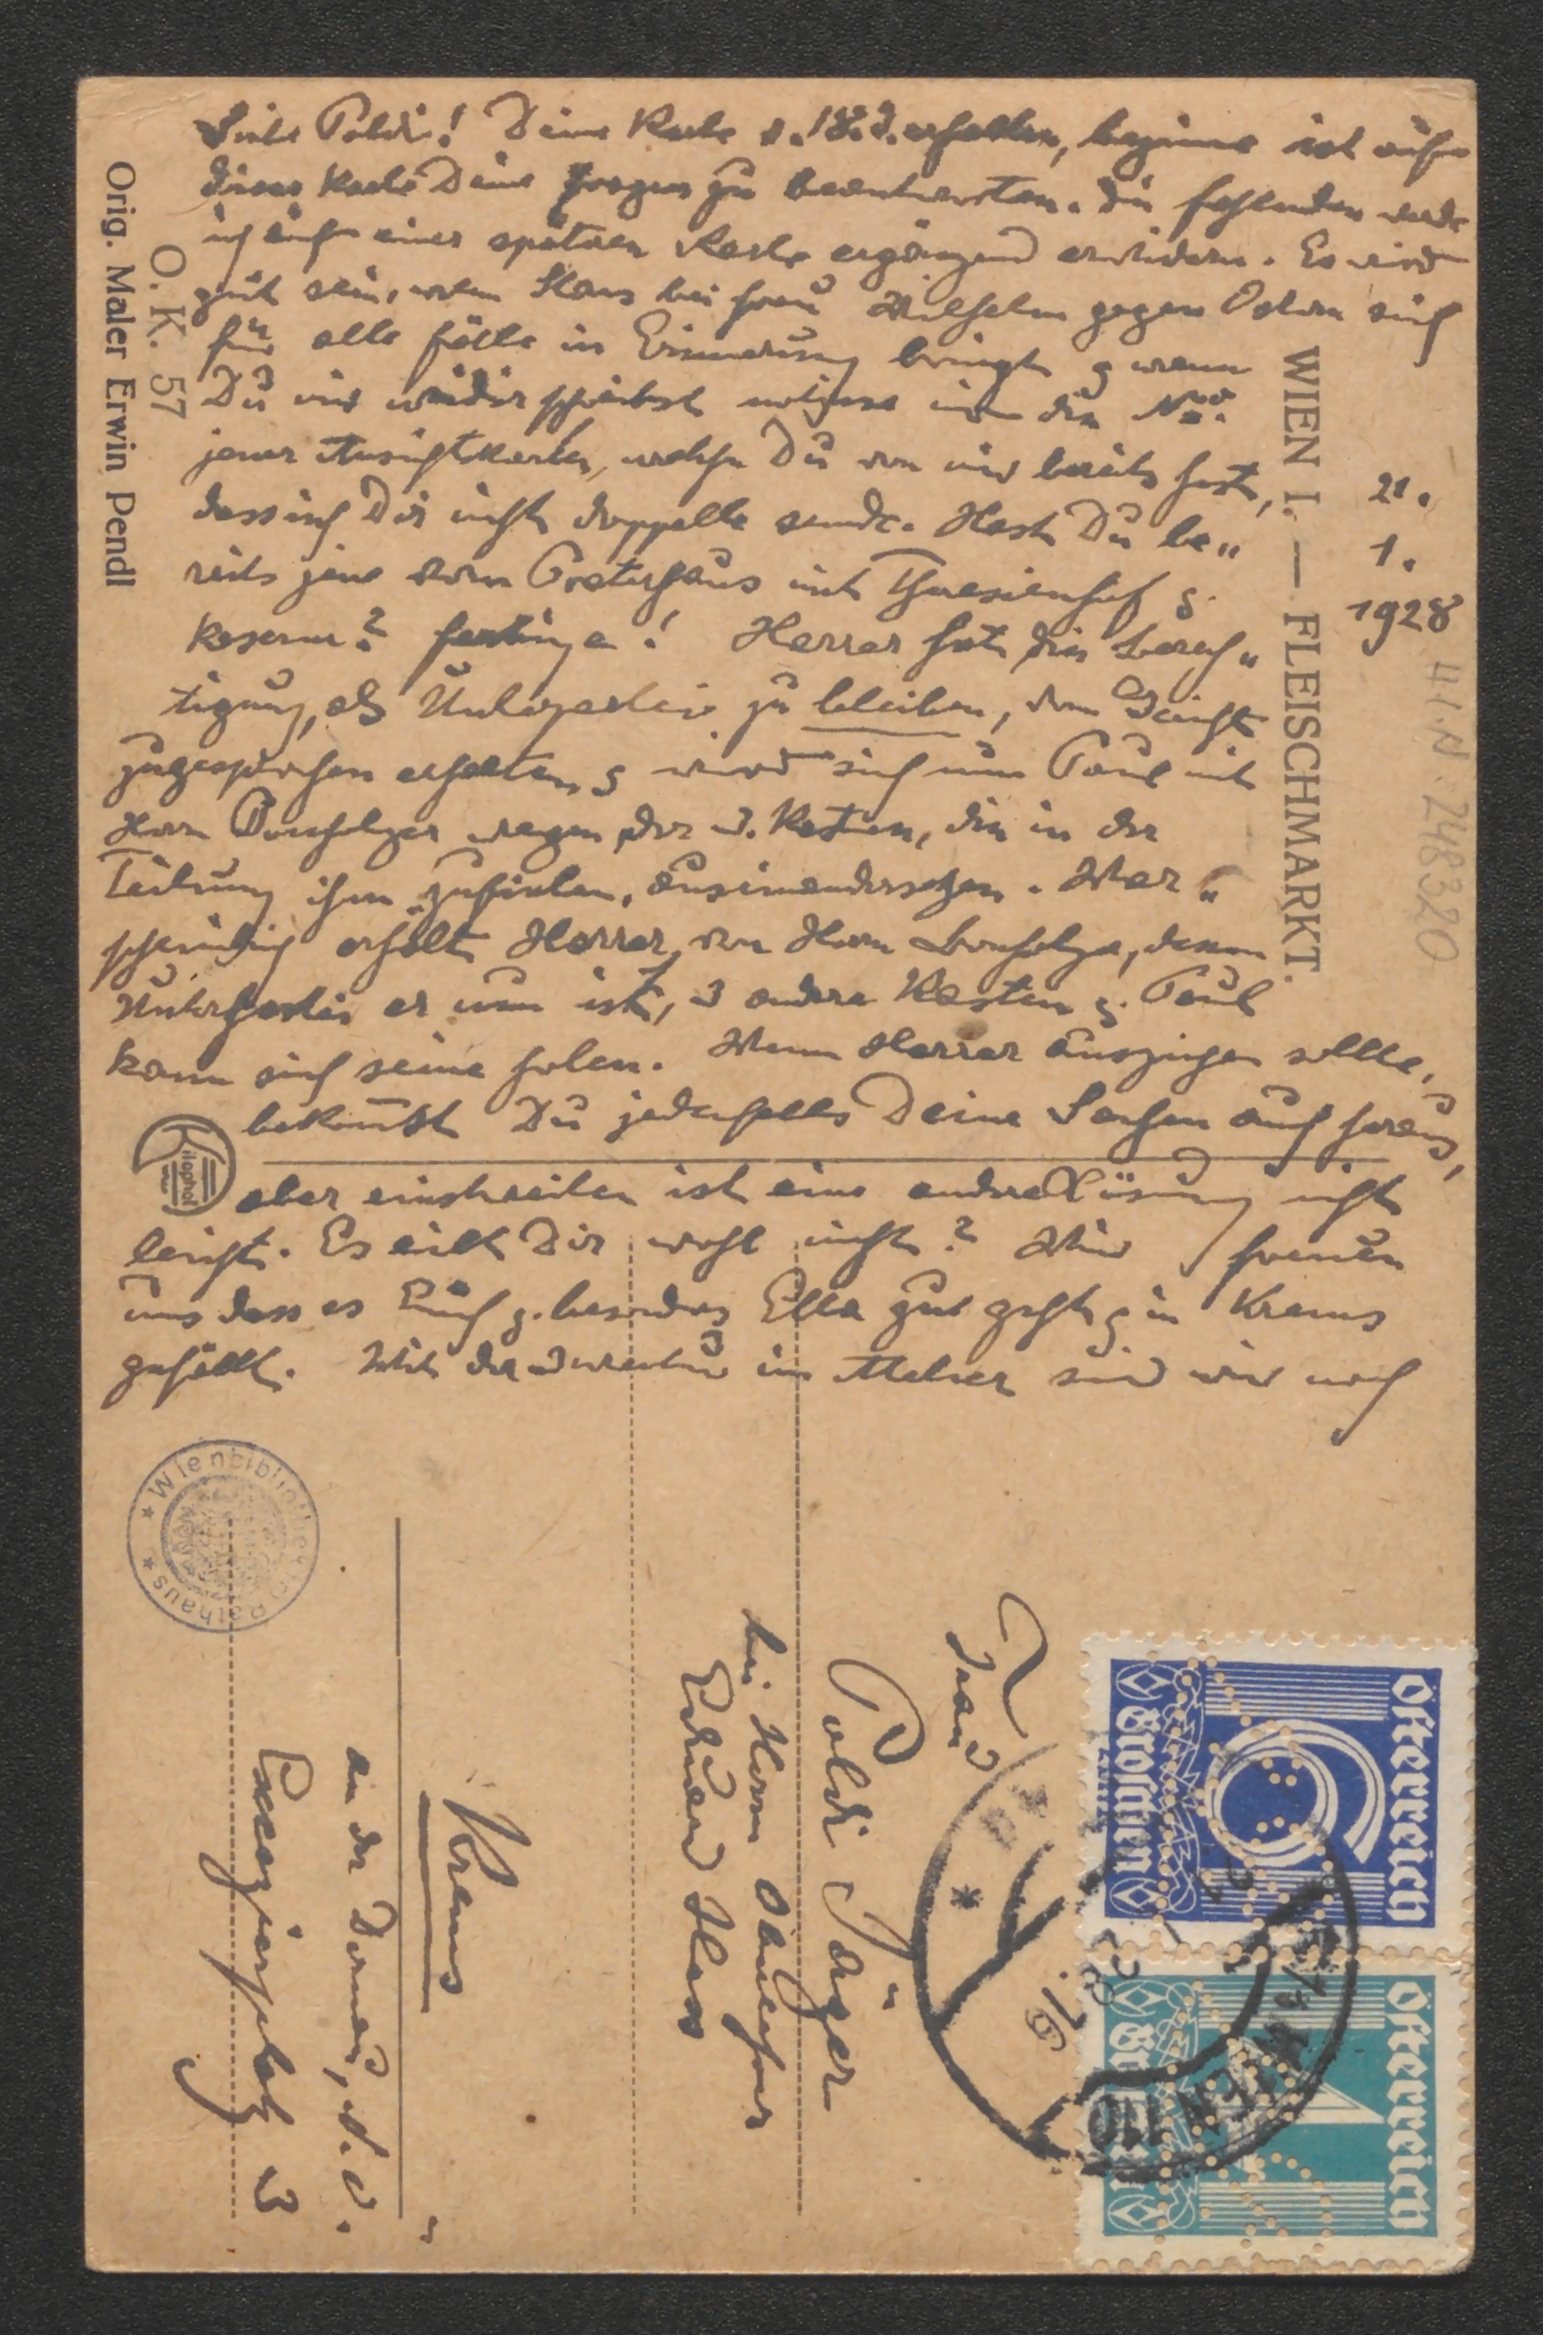 Liebe Poldi! Deine Karte v. 18. d. erhalten, beginne ich auf
dieser Karte Deine Fragen zu beantworten. Die fehlenden werde
ich auf einer späteren Karte ergänzend erwidern. Es wird
gut sein, wenn Hans bei Frau Wilhelm gegen Ostern sich
für alle Fälle in Erinnerung bringt & wenn
Du mir wieder schreibst notiere mir die Nro.
jener Ansichtkarten, welche Du von mir bereits hast,
dass ich Dir nicht doppelte sende. Hast Du be„
reits jene vom Praterhaus mit Theresienhof &
Kaserne? Herrer hat die Berech„
tigung, als Unterpartei zu bleiben, vom Gericht
zugesprochen erhalten & wird sich nun Paul mit
Herrn wegen der 3 Kasten, die in der
Teilung ihm zufielen, auseinandersetzen. War„
scheinlich erhält Herrer von Herrn dessen
Unterpartei er nun ist, 3 andere Kasten & Paul
kann sich seine holen. Wenn Herrer ausziehen sollte,
bekommst Du jedenfalls Deine Sachen auch heraus,
aber einstweilen ist eine andere Lösung nicht
leicht. Es eilt Dir wohl nicht? Wir freuen
uns dass es Euch & besonders Ella gut geht & in Krems
gefällt. Mit der im sind wir noch
21.
1.
1928
WIEN I. — FLEISCHMARKT.
HIN 248320
O. K. 57
Orig. Maler Erwin Pendl
Kilophot
Wienbibliothek im Rathaus
Frau
Poldi Jäger
bei Herrn
Eduard
Krems
an der Donau, N. Ö.
3
Österreich
2
Groschen
Österreich
1
WIEN 110